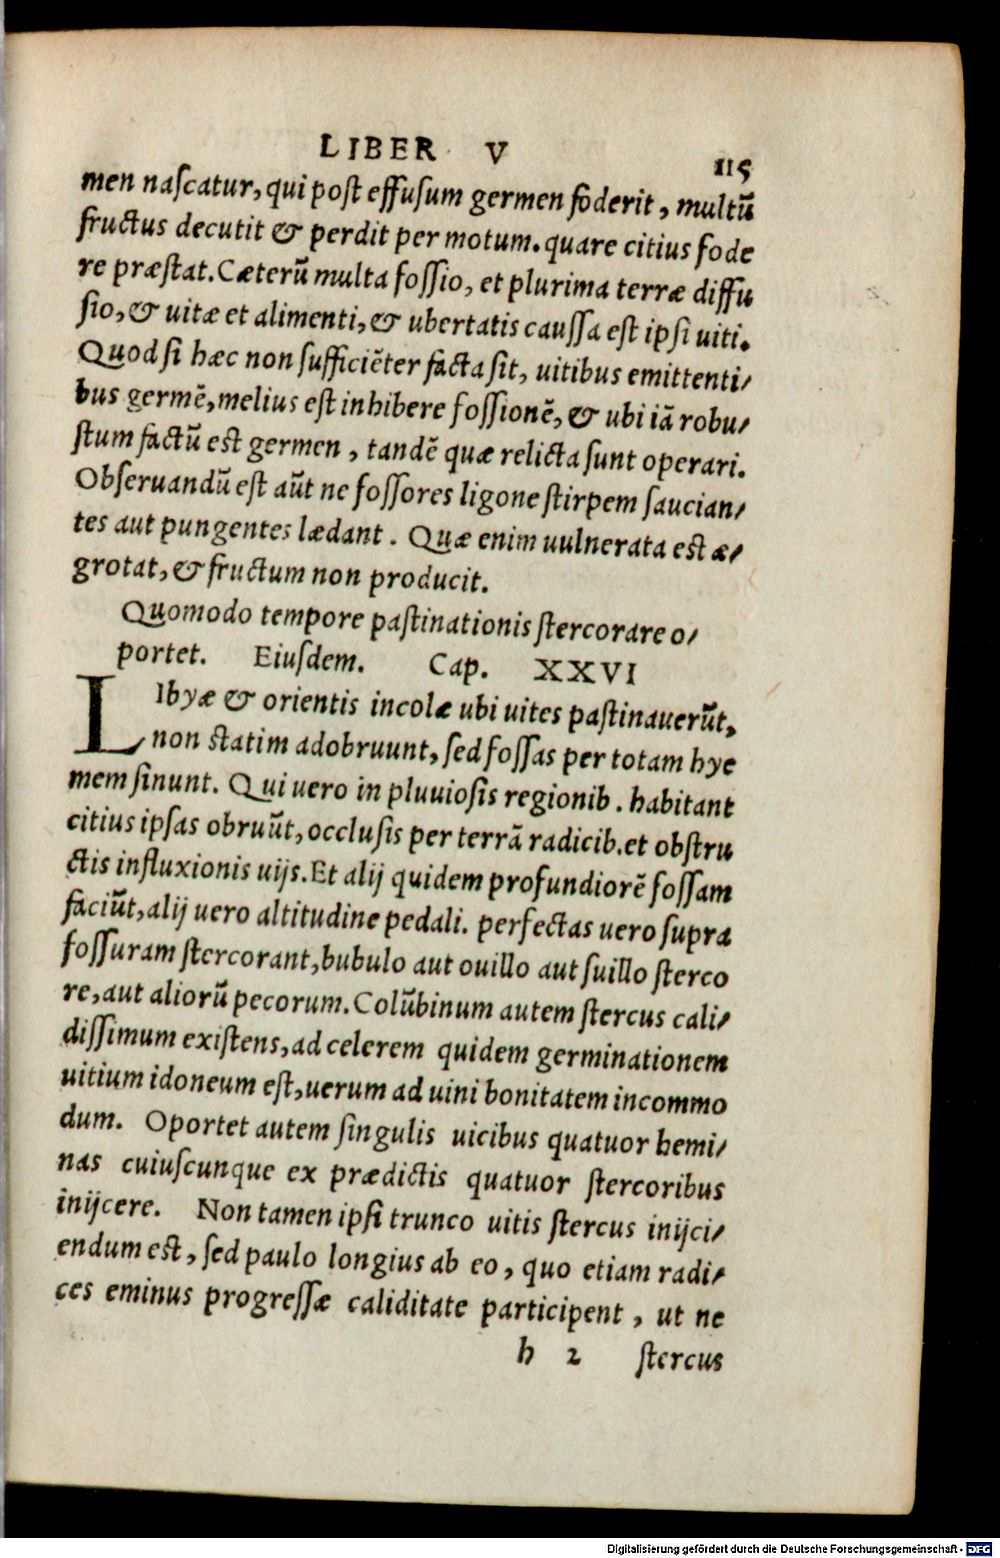 LIBER V 115
men naſcatur, qui poſt effuſum germen foderit, multũ
fructus decutit & perdit per motum. quare citius fode
re præſtat. Cæterũ multa foſſio, et plurima terræ diffu
ſio, & uitæ et alimenti, & ubertatis cauſſa eſt ipſi uiti.
Quod ſi hæc non ſufficiẽter facta ſit, uitibus emittenti/
bus germẽ, melius eſt inhibere foſſionẽ, & ubi iã robu/
ſtum factũ eſt germen, tandẽ quæ relicta ſunt operari.
Obſeruandũ eſt aũt ne foſſores ligone ſtirpem ſaucian/
tes aut pungentes lædant. Quæ enim uulnerata eſt æ/
grotat, & fructum non producit.
Quomodo tempore paſtinationis ſtercorare o/
portet. Eiuſdem. Cap. XXVI
LIbyæ & orientis incolæ ubi uites paſtinauerũt,
non ſtatim adobruunt, ſed foſſas per totam hye
mem ſinunt. Qui uero in pluuioſis regionib. habitant
citius ipſas obruũt, occluſis per terrã radicib. et obſtru
ctis influxionis uijs. Et alij quidem profundiorẽ foſſam
faciũt, alij uero altitudine pedali. perfectas uero ſupra
foſſuram ſtercorant, bubulo aut ouillo aut ſuillo ſterco
re, aut aliorũ pecorum. Colũbinum autem ſtercus cali/
diſſimum exiſtens, ad celerem quidem germinationem
uitium idoneum eſt, uerum ad uini bonitatem incommo
dum. Oportet autem ſingulis uicibus quatuor hemi/
nas cuiuſcunque ex prædictis quatuor ſtercoribus
inijcere. Non tamen ipſi trunco uitis ſtercus inijci/
endum eſt, ſed paulo longius ab eo, quo etiam radi/
ces eminus progreſſæ caliditate participent, ut ne
h 2 ſtercus
Digitalisierung gefördert durch die Deutsche Forschungsgemeinschaft - DFG